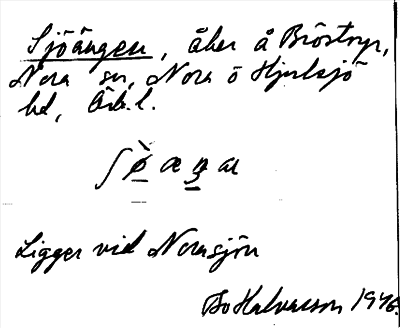 Sjöängen, åker å Bröstorp,
Nora sn, Nora o Hjulsjö
bd, Örb.l.
Ligger vid Norasjön
Bo Halvarson 1946.